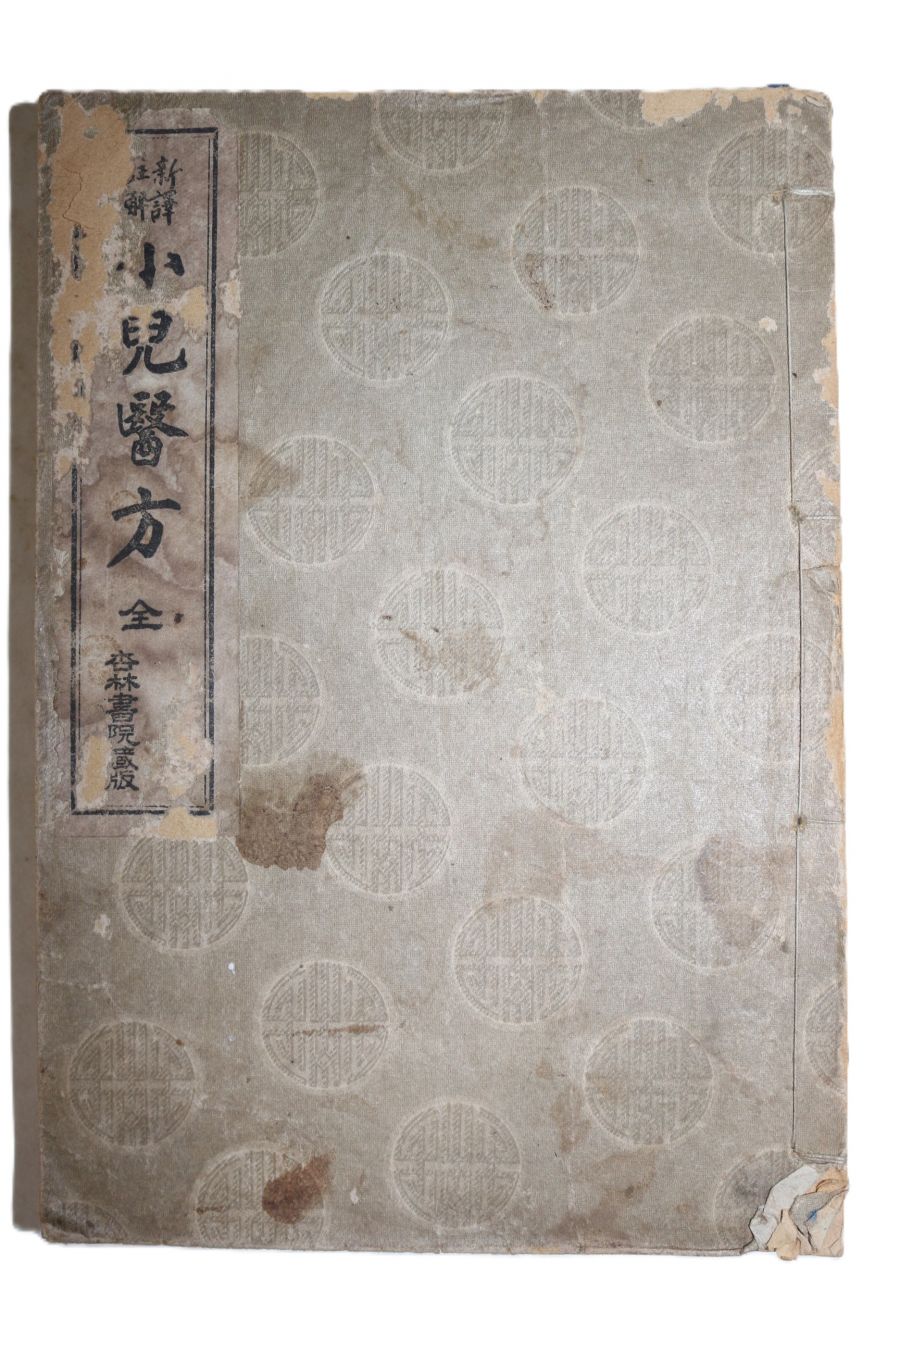 新譯
註解
小兒醫方
全
杏林書院蔵版